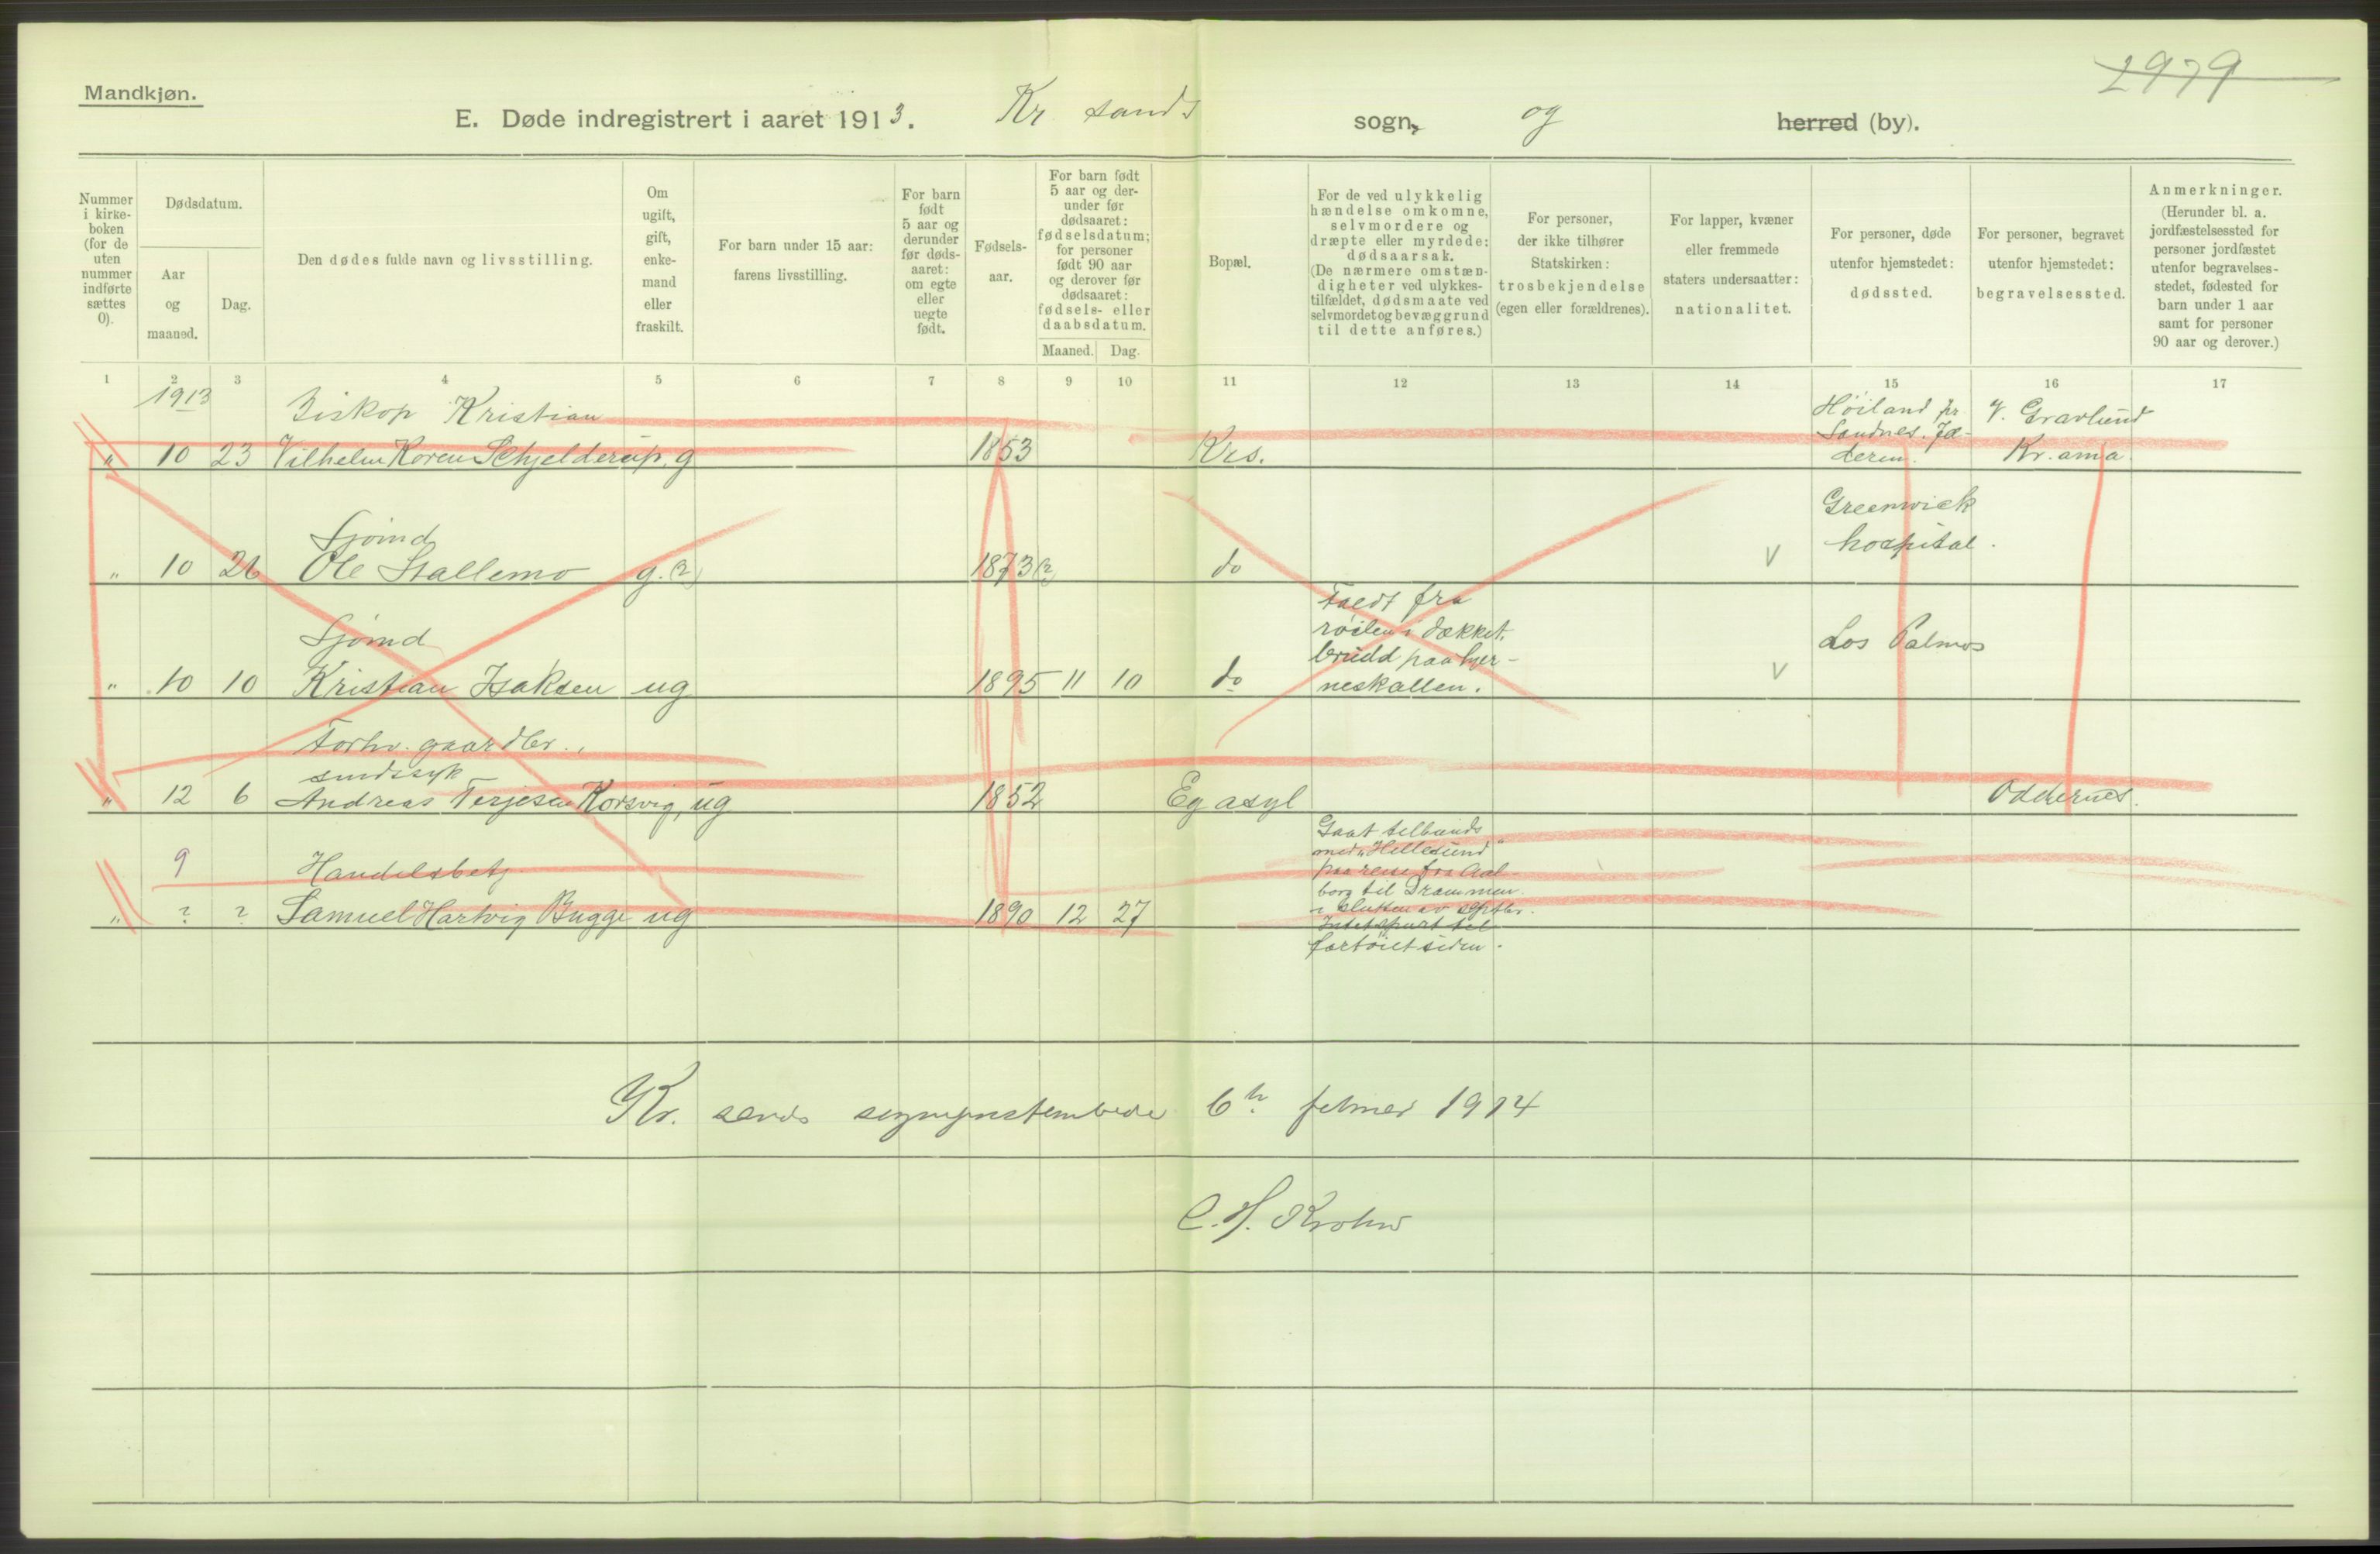 2979
Mandkjøn.
E. Døde indregistrert i aaret 1913. Kr sands sogn, og herred (by).
Nummer i kirkeboken (for de uten nummer indførte sættes 0).
Dødsdatum.
Aar og maaned.
Dag.
Den dødes fulde navn og livsstilling.
Om ugift, gift, enkemand eller fraskilt.
For barn under 15 aar: farens livsstilling.
For barn født 5 aar og derunder før dødsaaret: om egte eller uegte født.
Fødselsaar.
For barn født 5 aar og derunder før dødsaaret: fødselsdatum; for personer født 90 aar og derover før dødsaaret: fødsels- eller daabsdatum.
Maaned. Dag.
Bopæl.
For de ved ulykkelig hændelse omkomne, selvmordere og dræpte eller myrdede: dødsaarsak. (De nærmere omstændigheter ved ulykkestilfældet, dødsmaate ved selvmordet og bevæggrund til dette anføres.)
For personer, der ikke tilhører Statskirken: trosbekjendelse (egen eller forældrenes).
For lapper, kvæner eller fremmede staters undersaatter: nationalitet.
For personer, døde utenfor hjemstedet: dødssted.
For personer, begravet utenfor hjemstedet: begravelsessted.
Anmerkninger. (Herunder bl. a. jordfæstelsessted for personer jordfæstet utenfor begravelsesstedet, fødested for barn under 1 aar samt for personer 90 aar og derover.)
1 2 3 4 5 6 7 8 9 10 11 12 13 14 15 16 17
1913
Biskop Kristian
Høiland pr. Sandnes. Jæderen.
V. Gravlund Kr.ania.
" 10 23 Vilhelm Koren Schjelderup, g 1853 Krs.
Sjømd
Greenwick hospital.
" 10 26 Ole Stallemo g. (?) 1873(?) do v
Sjømd
Faldt fra
røilen i dækket.
brudd paa hjer-
neskallen.
" 10 10 Kristian Isaksen ug 1895 11 10 do v Los Palmos
Forhv. gaardbr.,
sindssyk
" 12 6 Andreas Terjesen Korsvig, ug 1852 Eg asyl Oddernes.
9 Handelsbetj.
" ? ? Samuel Hartvig Bugge ug 1890 12 27
Gaat tilbunds
med "Hellesund"
paa reise fra Aal-
borg til Drammen.
i slutten av septbr.
Intet spurt til
fartöiet siden.
Kr. sands sogneprestembede 6te februar 1914
C. H. Krohn